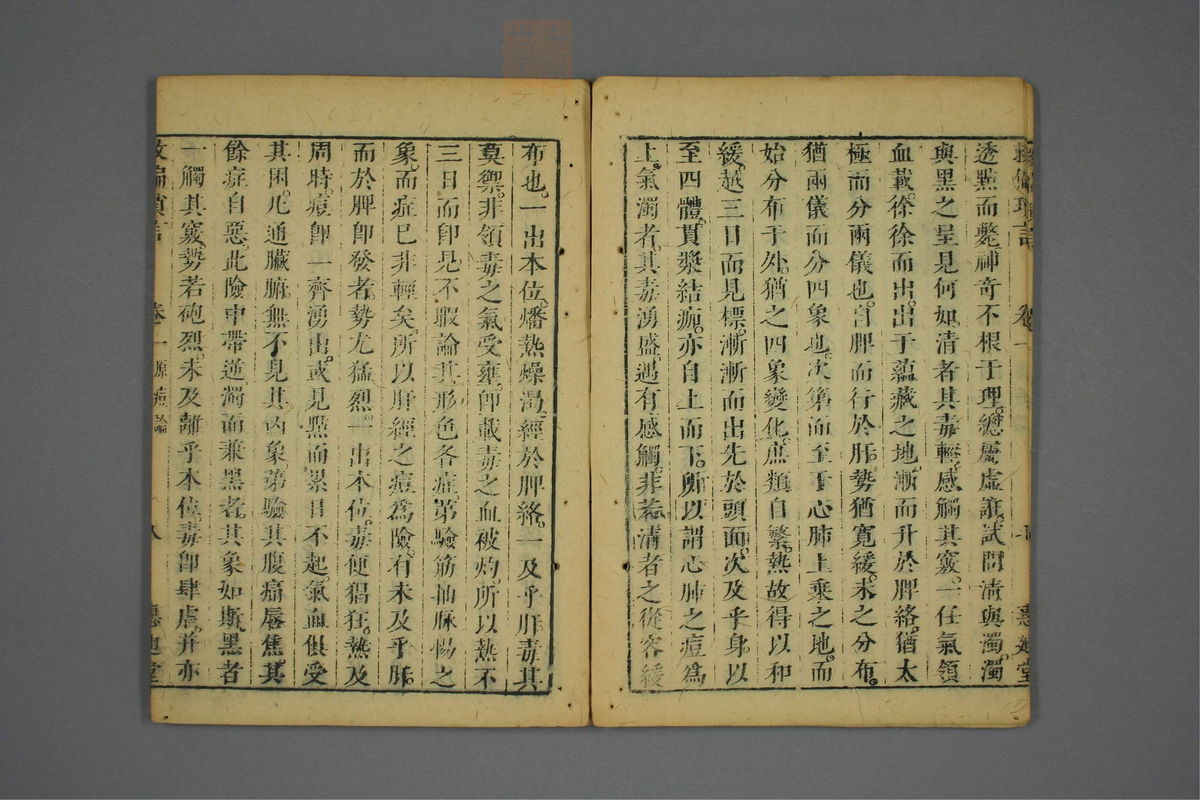 救偏瑣言 卷一 惠迪堂
透點而斃神奇不根于理總屬虛誑試問清與濁濁
與黑之呈見何如清者其毒輕感觸其竅一任氣領
血載徐徐而出出于蘊藏之地漸而升於脾絡猶太
極而分兩儀也自脾而行於肝勢猶寬緩未之分布
猶兩儀而分四象也次第而至于心肺上乘之地而
始分布于外猶之四象變化庶類自繁熱故得以和
緩越三日而見標漸漸而出先於頭面次及乎身以
至四體貫漿結痂亦自上而下所以謂心肺之痘為
上氣濁者其毒湧盛遇有感觸非若清者之從容緩
布也一出本位燔熱燥渴經於脾絡一及乎肝毒其
莫禦非領毒之氣受壅卽載毒之血被灼所以熱不
三日而卽見不暇論其形色各症第驗筋抽脉惕之
象而症已非輕矣所以肝經之痘為險有未及乎肝
而於脾卽發者勢尤猛烈一出本位毒便猖狂熱及
周時痘卽一齊湧出或見點而累日不起氣血俱受
其困凡通臟腑無不見其內象第驗其腹痛唇焦其
餘症自惡此險中帶逆濁而兼黑者其象如㡭黑者
一觸其竅勢若砲烈未及離乎本位毒卽肆虐并亦
救偏瑣言 卷一 原痘 八 惠迪堂